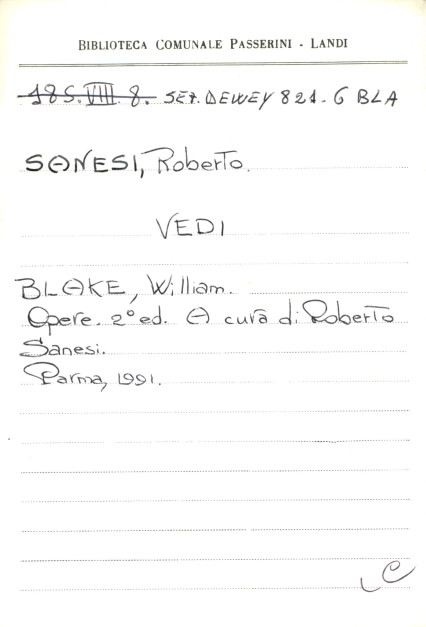 BIBLIOTECA COMUNALE PASSERINI - LANDI
18S.VIII.8. SEZ. DEWEY 821.6 BLA
SANESI, Roberto.
VEDI
BLAKE, William.
Opere. 2° ed. A cura di Roberto
Sanesi.
Parma, 1991.